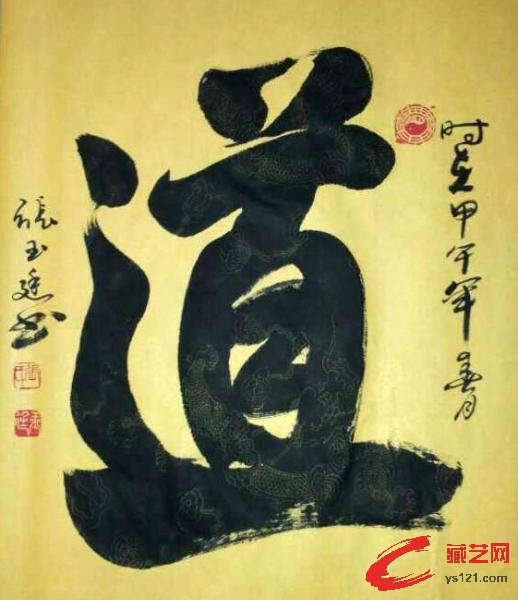 道
时在甲午年春月
張玉廷书
藏艺网
ys121.com